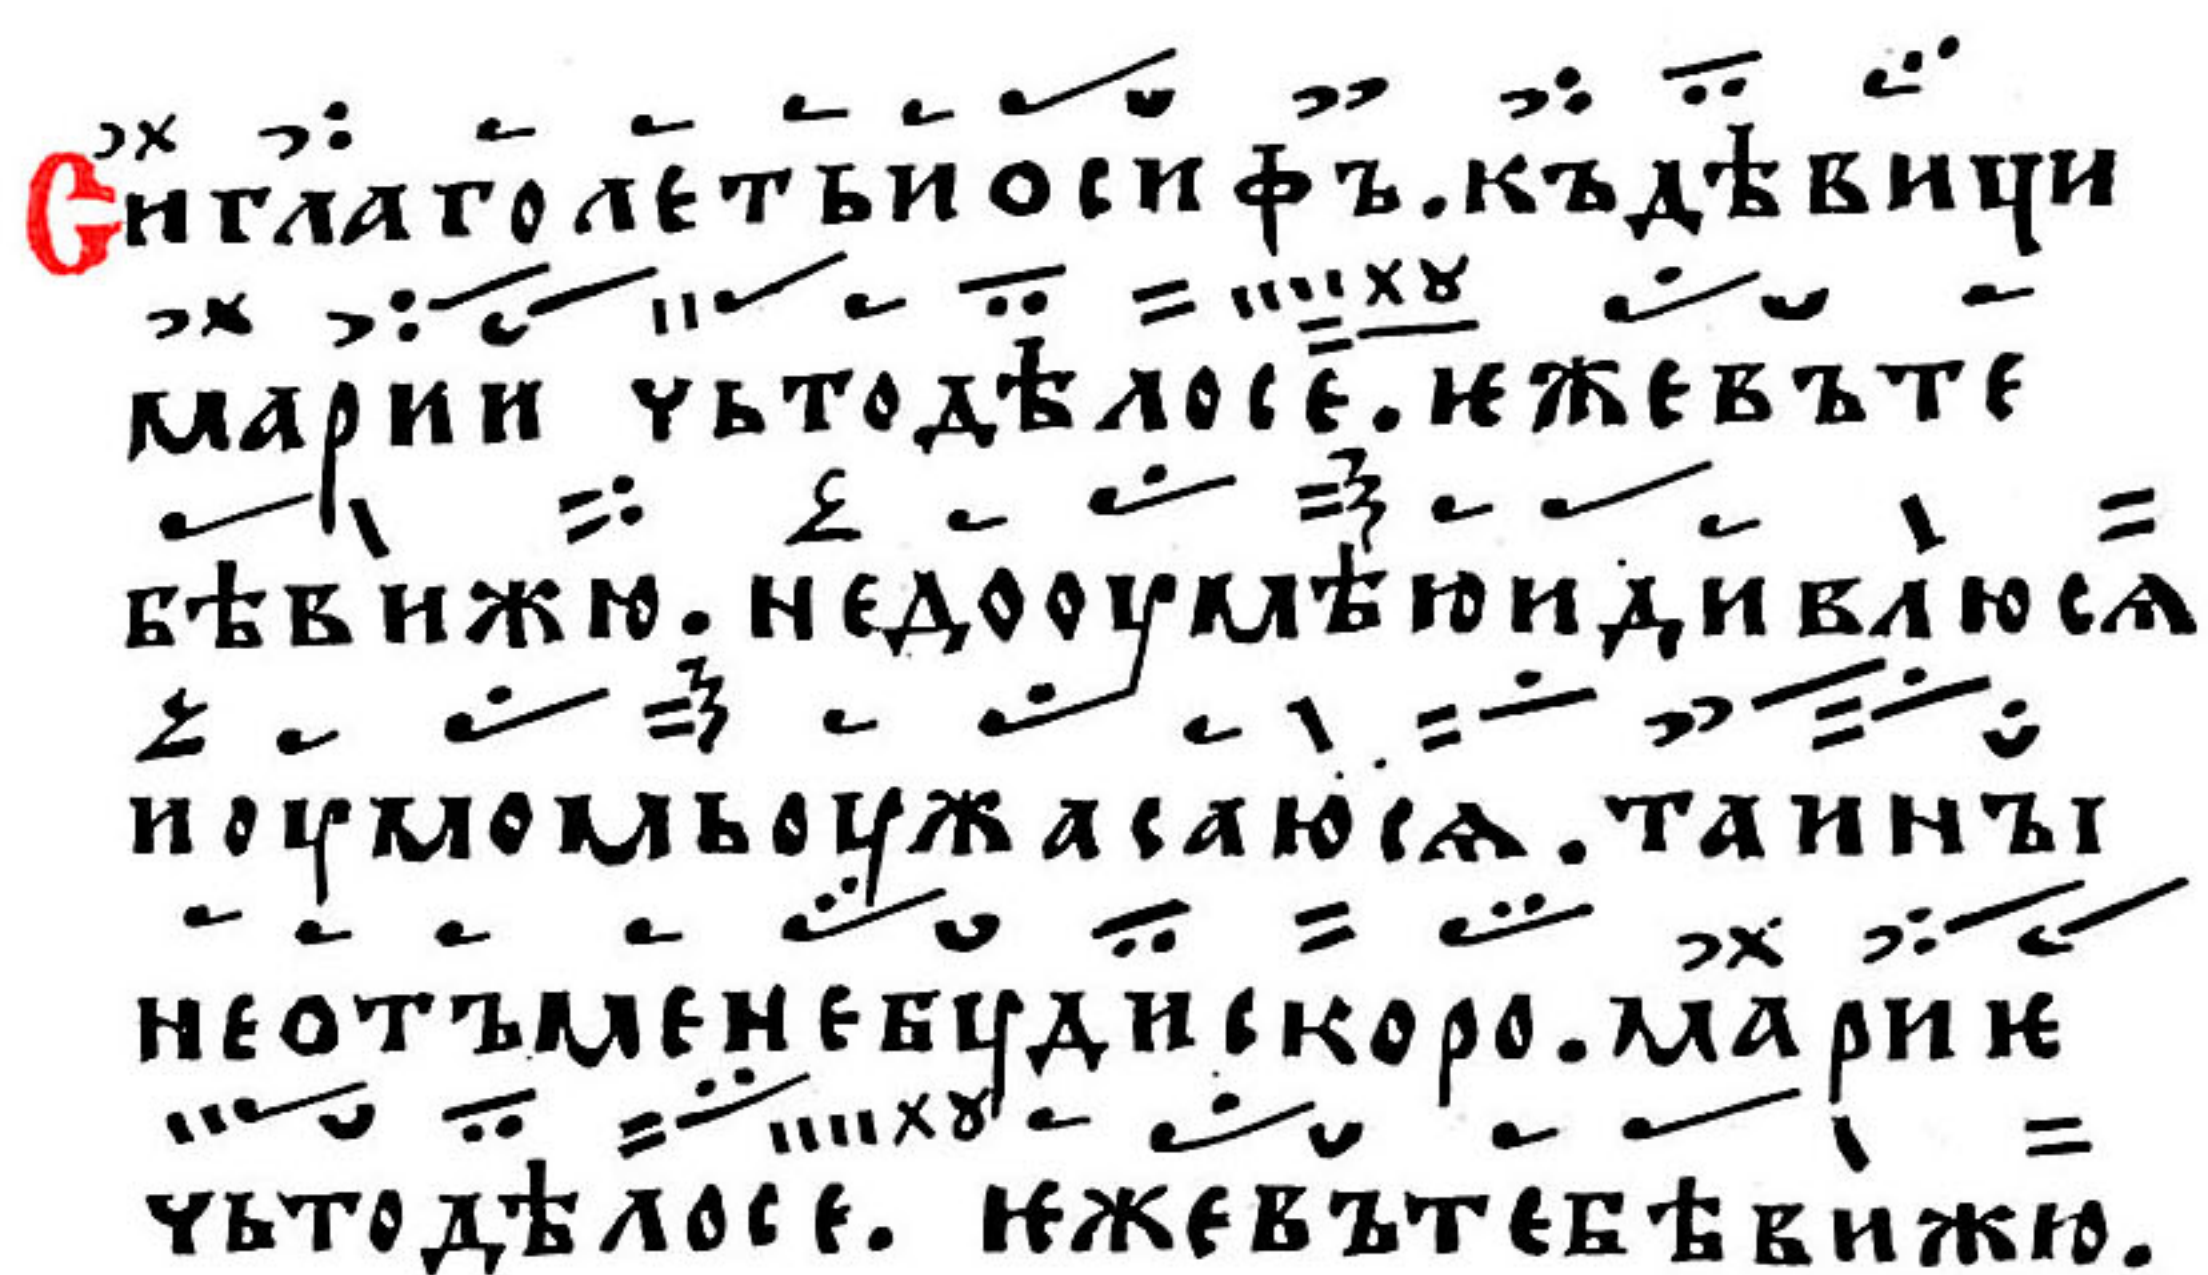 Сиглаголетьиосифъ.къдѣвици
марии чьтодѣлосе.ѥжевъте
бѣвижю.недооумѣюидивлюсѧ
иоумомьоужасаюсѧ.таинъі
неотъменебудискоро.мариѥ
чьтодѣлосе. ѥжевътебѣвижю.